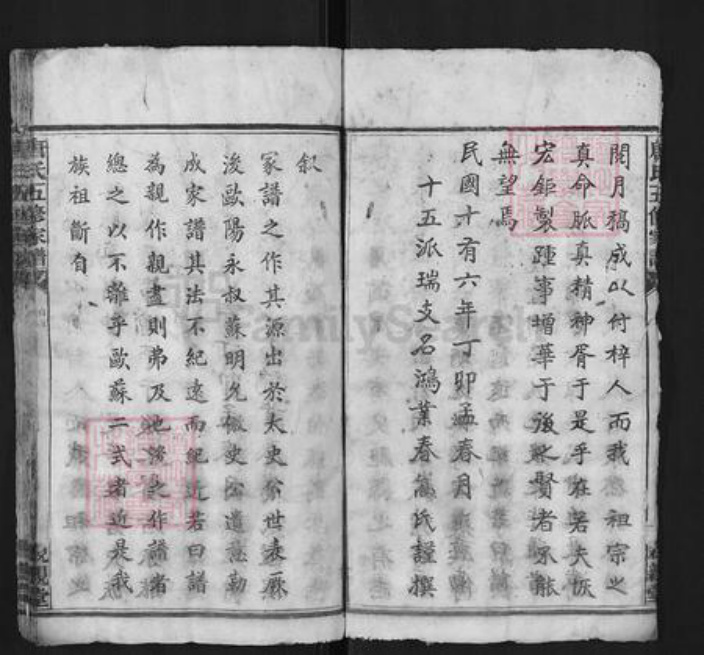 閱月稿成以付梓人而我 祖宗之
真命脈真精神胥于是乎在若夫恢
宏鉅製踵事增華于後之賢者不能
無望焉
民國十有六年丁卯孟春月
十五派瑞支名鴻業春 氏謹撰
叙
家譜之作其源出於太史公世表厥
後歐陽永叔蘇明允倣史公遺意勒
成家譜其法不紀遠而紀近若曰譜
為親作親盡則弗及也後之作譜者
總之以不離乎歐蘇二式者近是我
族祖斷自
唐氏五修家譜
親堂
FamilySearch